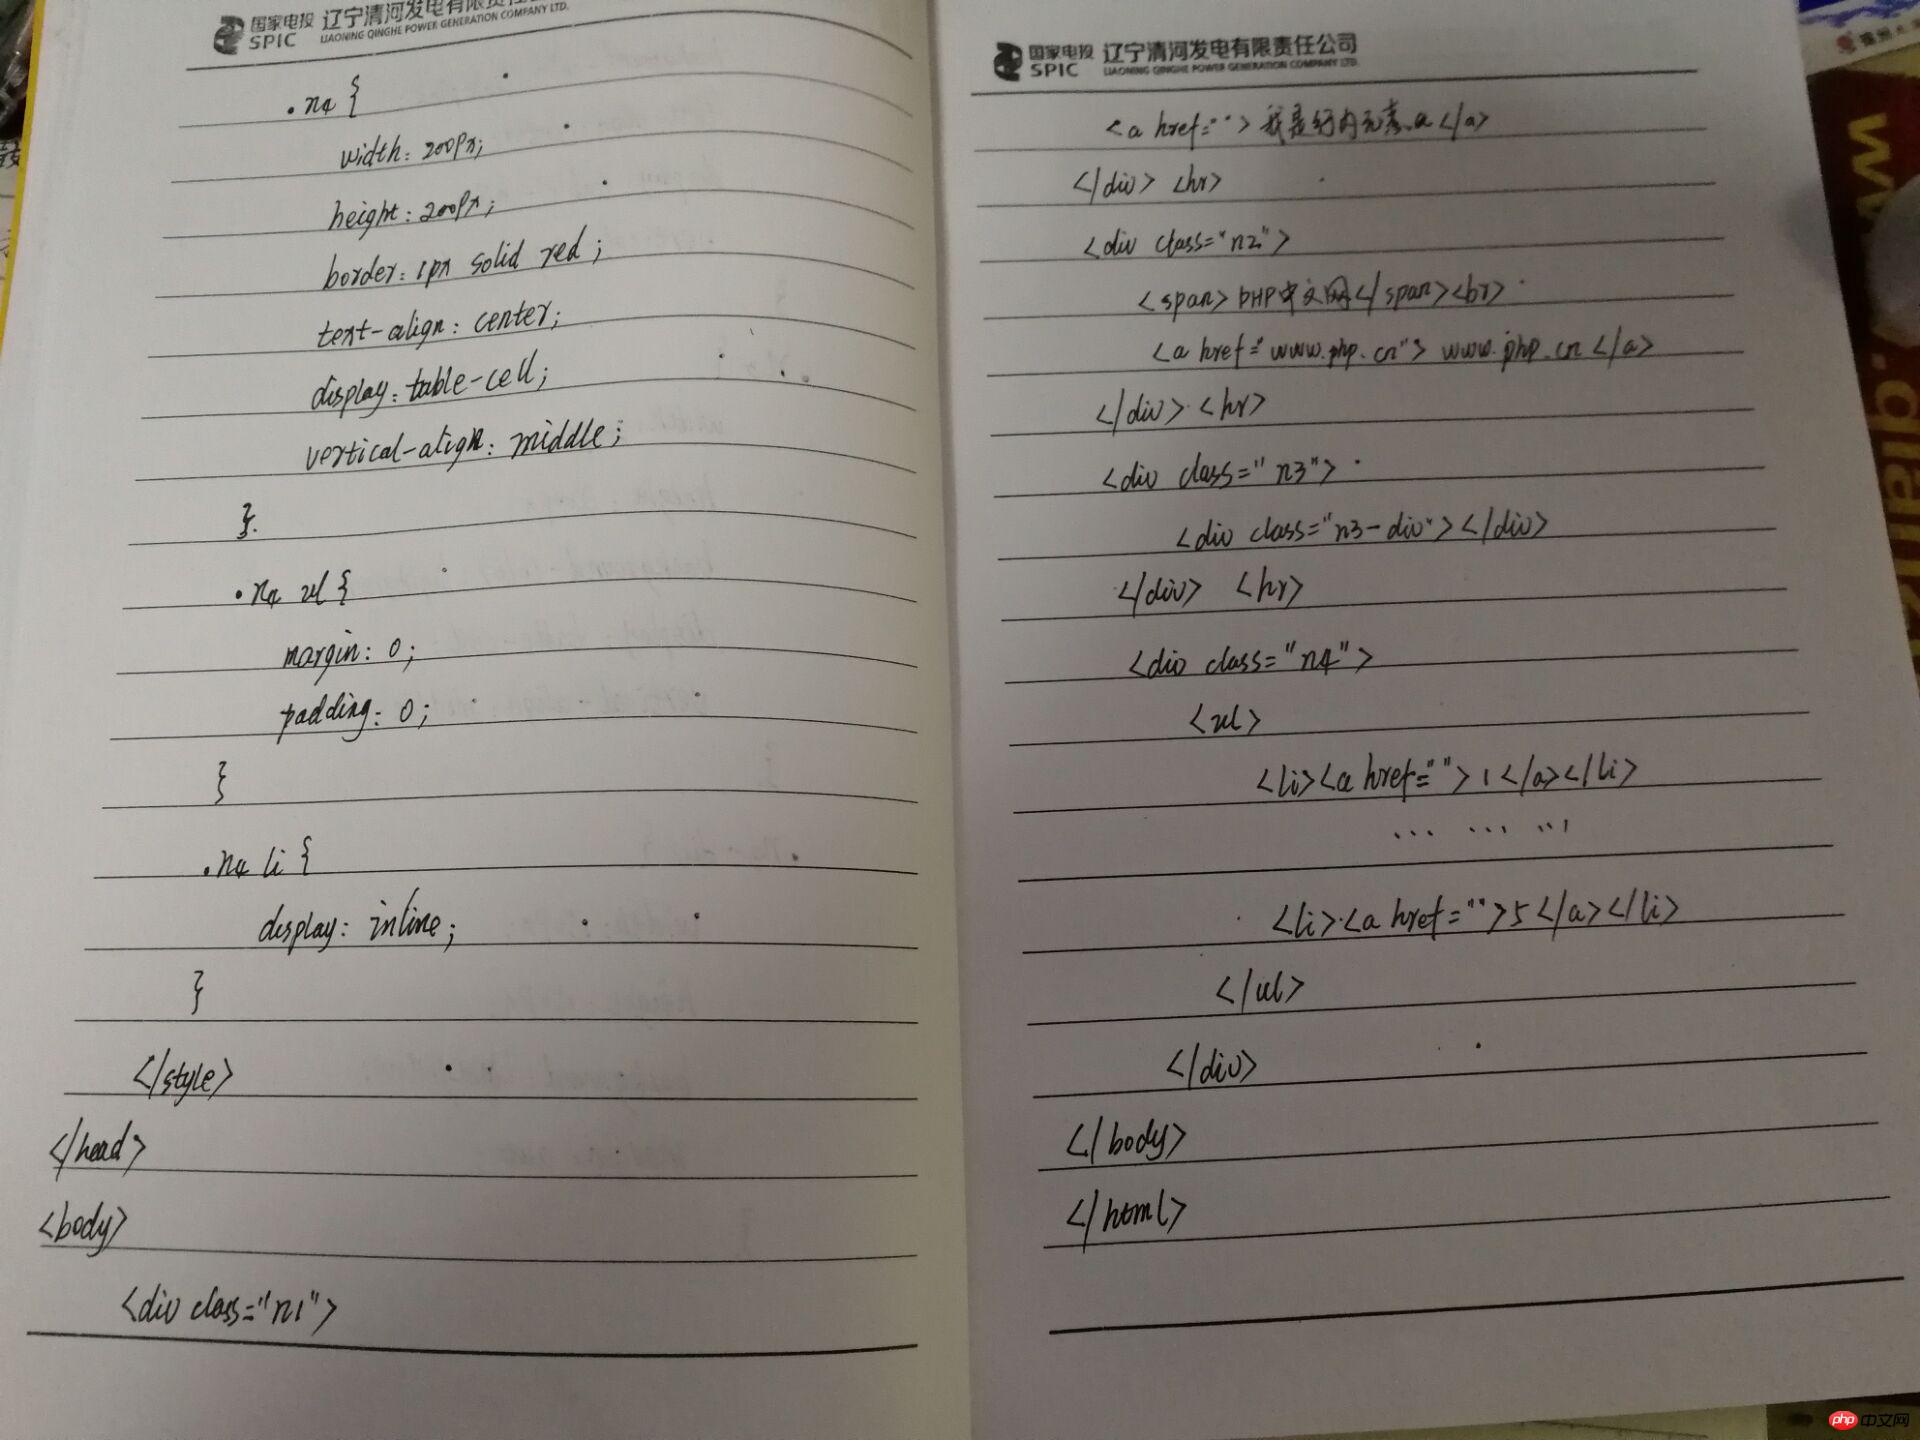 国家电投 辽宁清河发电有限责任公司
SPIC LIAONING QINGHE POWER GENERATION COMPANY LTD.
.n4 {
width: 200px;
height: 200px;
border: 1px solid red;
text-align: center;
display: table-cell;
vertical-align: middle;
}
.n4 ul {
margin: 0;
padding: 0;
}
.n4 li {
display: inline;
}
</style>
</head>
<body>
<div class="n1">
国家电投 辽宁清河发电有限责任公司
SPIC LIAONING QINGHE POWER GENERATION COMPANY LTD.
<a href="">我是行内元素a</a>
</div> <hr>
<div class="n2">
<span>PHP中文网</span><br>
<a href="www.php.cn">www.php.cn</a>
</div> <hr>
<div class="n3">
<div class="n3-div"></div>
</div> <hr>
<div class="n4">
<ul>
<li><a href="">1</a></li>
... ... ...
<li><a href="">5</a></li>
</ul>
</div>
</body>
</html>
php 中文网